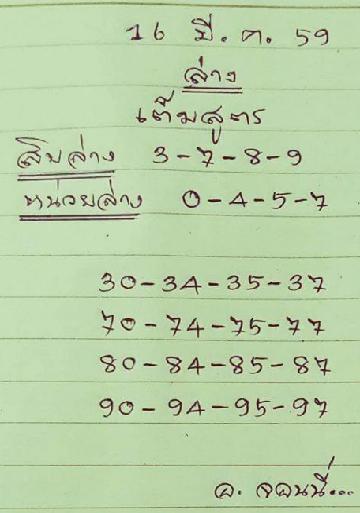 16 มี. ค. 59
ล่าง
เต็มสูตร
สิบล่าง 3-7-8-9
หน่วยล่าง 0-4-5-7
30-34-35-37
70-74-75-77
80-84-85-87
90-94-95-97
อ. จอนนี่...